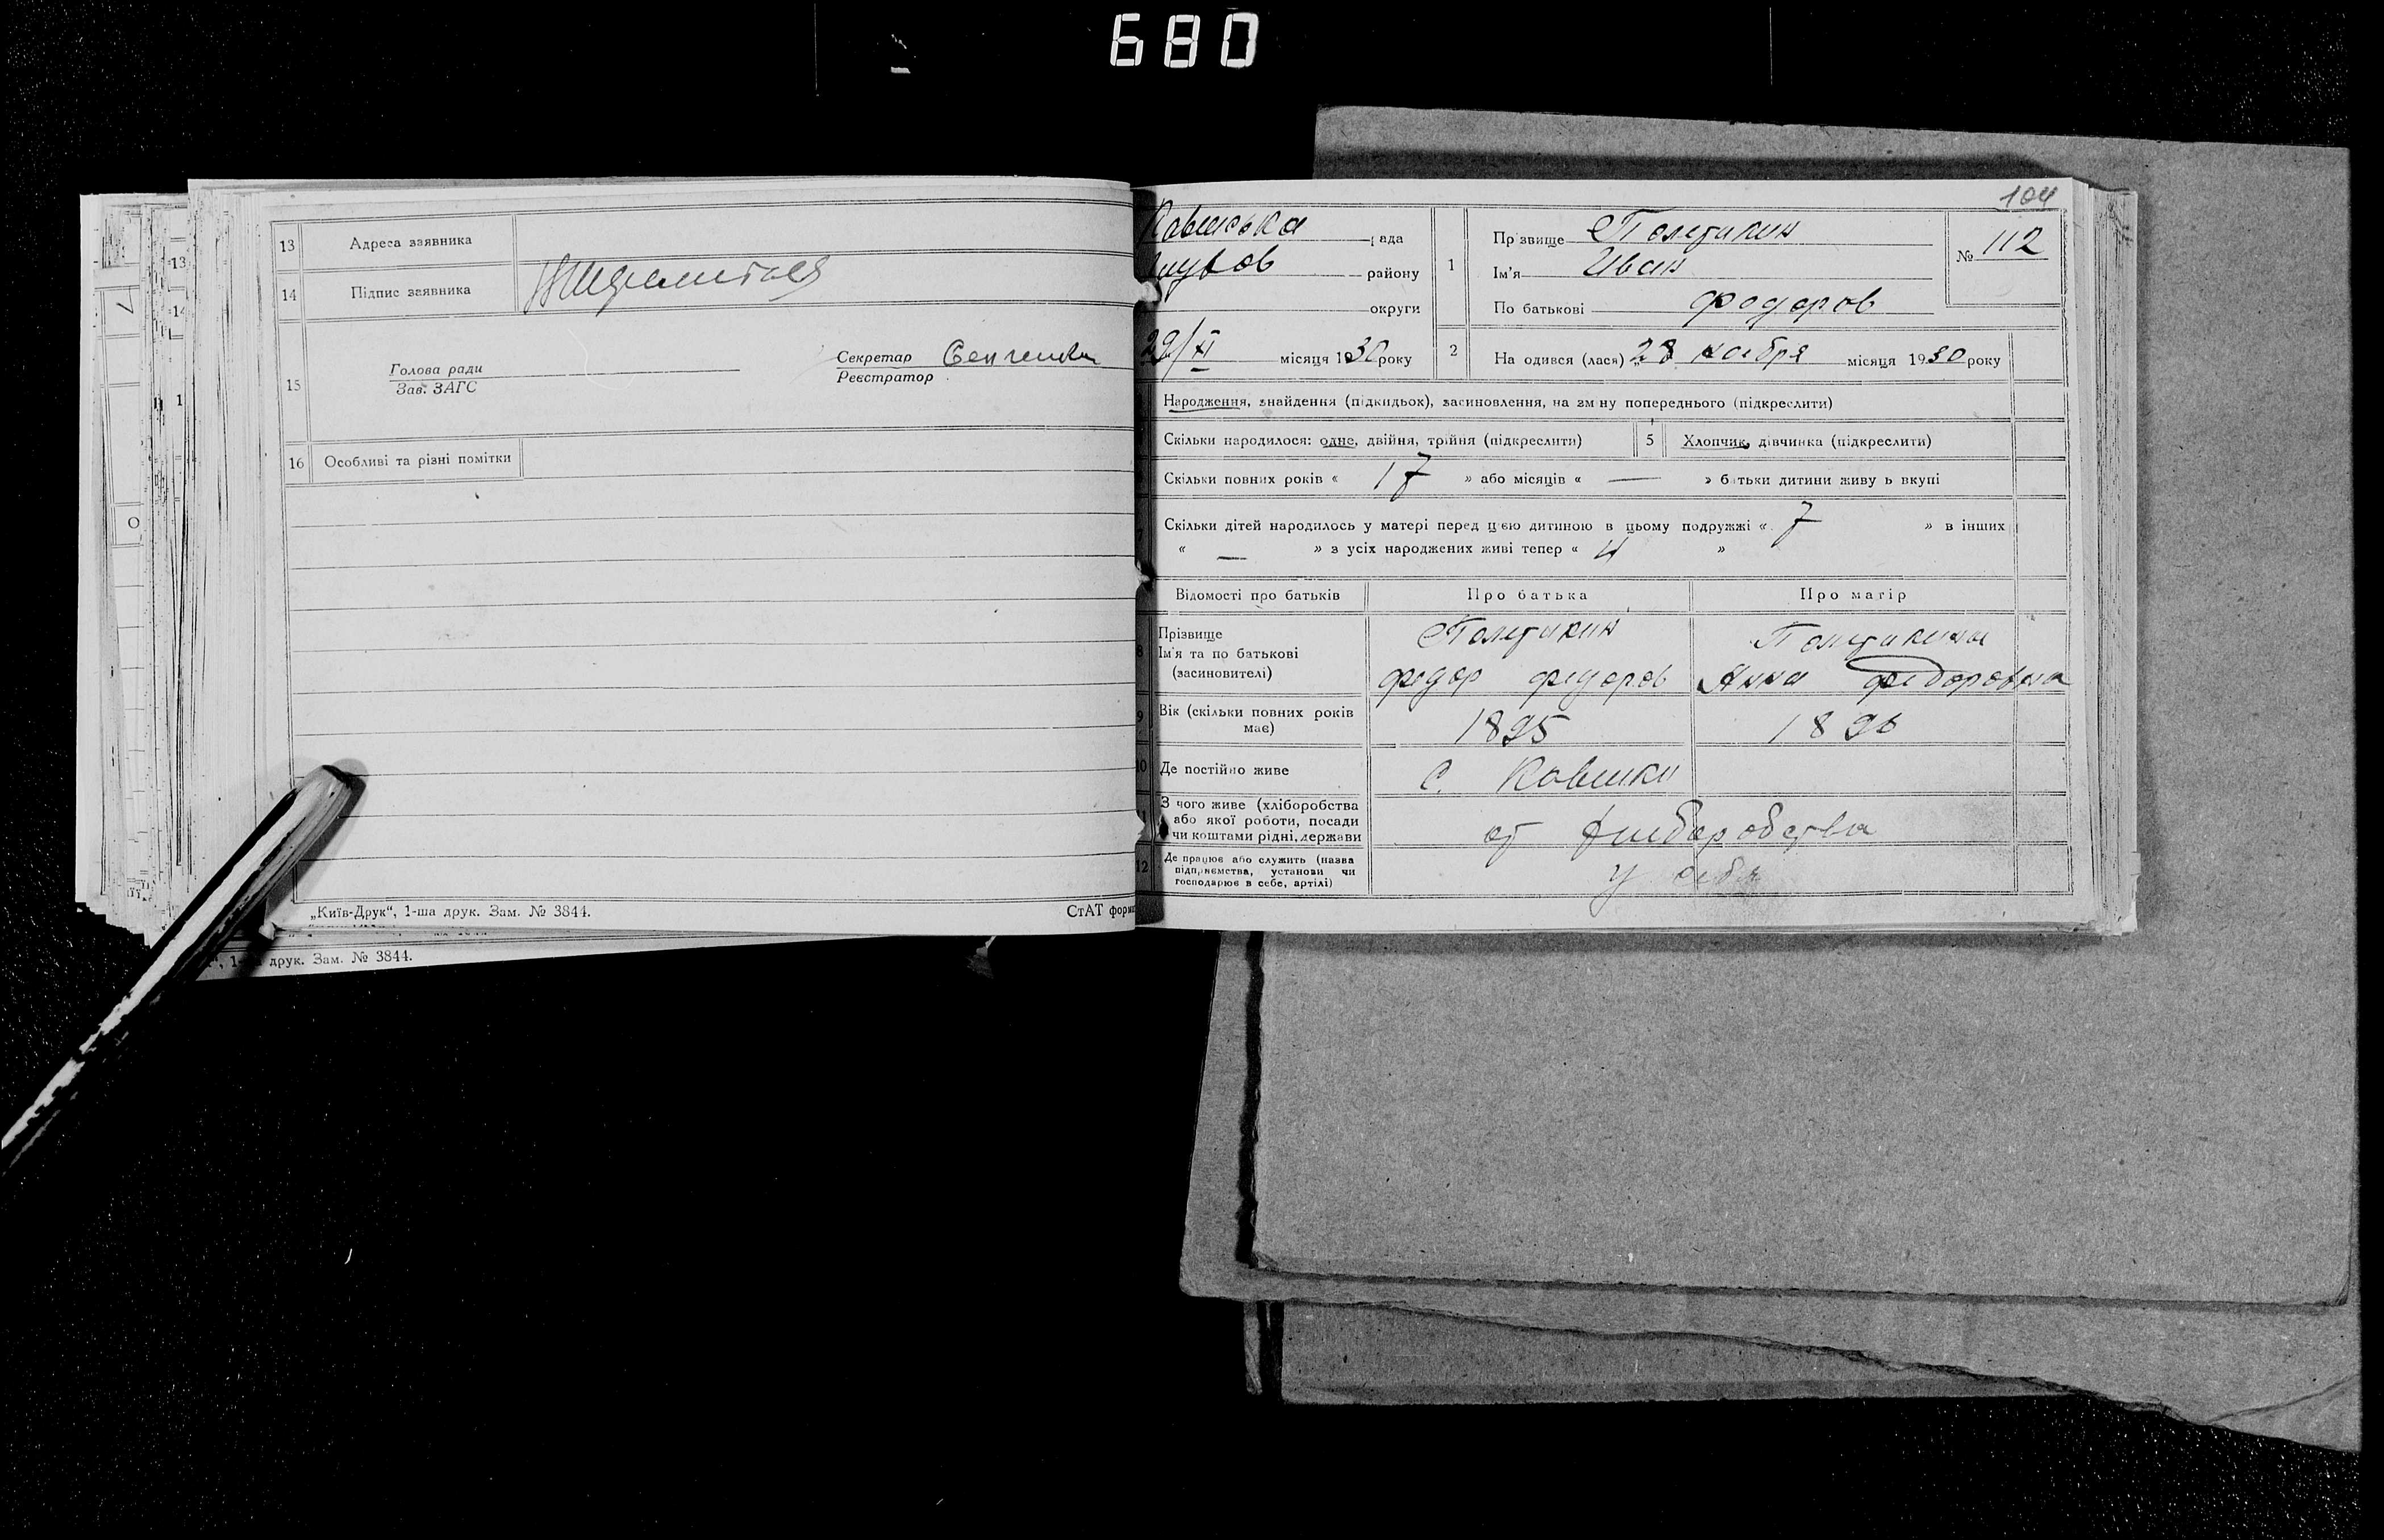 680
13 Адреса заявника
14 Підпис заявника
15 Голова ради
Зав. ЗАГС
Секретар
Реєстратор
16 Особливі та різні помітки
„Київ-Друк“, 1-ша друк. Зам. № 3844.
СтАТ форма
друк. Зам. № 3844.
104
Ковшська рада
району
округи
29/XI місяця 1930 року
1 Прізвище Полетикин
Ім'я Иван
По батькові Федоров
№ 112
2 Народився (лася) „28 ноября місяця 1930 року
Народження, знайдення (підкидьок), засиновлення, на зміну попереднього (підкреслити)
Скільки народилося: одне, двійня, трійня (підкреслити)
5 Хлопчик, дівчинка (підкреслити)
Скільки повних років « 17 » або місяців « — » батьки дитини живуть вкупі
7 Скільки дітей народилось у матері перед цією дитиною в цьому подружжі « 7 » в інших
« — » з усіх народжених живі тепер « 4 »
Відомості про батьків Про батька Про матір
8 Прізвище
Ім'я та по батькові
(засиновителі)
Полетикин
Федор Федоров
Полетикина
Анна Федоровна
9 Вік (скільки повних років
має)
1895
1896
10 Де постійно живе с. Ковшки
З чого живе (хліборобства
або якої роботи, посади
чи коштами рідні, держави
от хлиборобства
12 Де працює або служить (назва
підприємства, установи чи
господарює в себе, артілі)
у себя